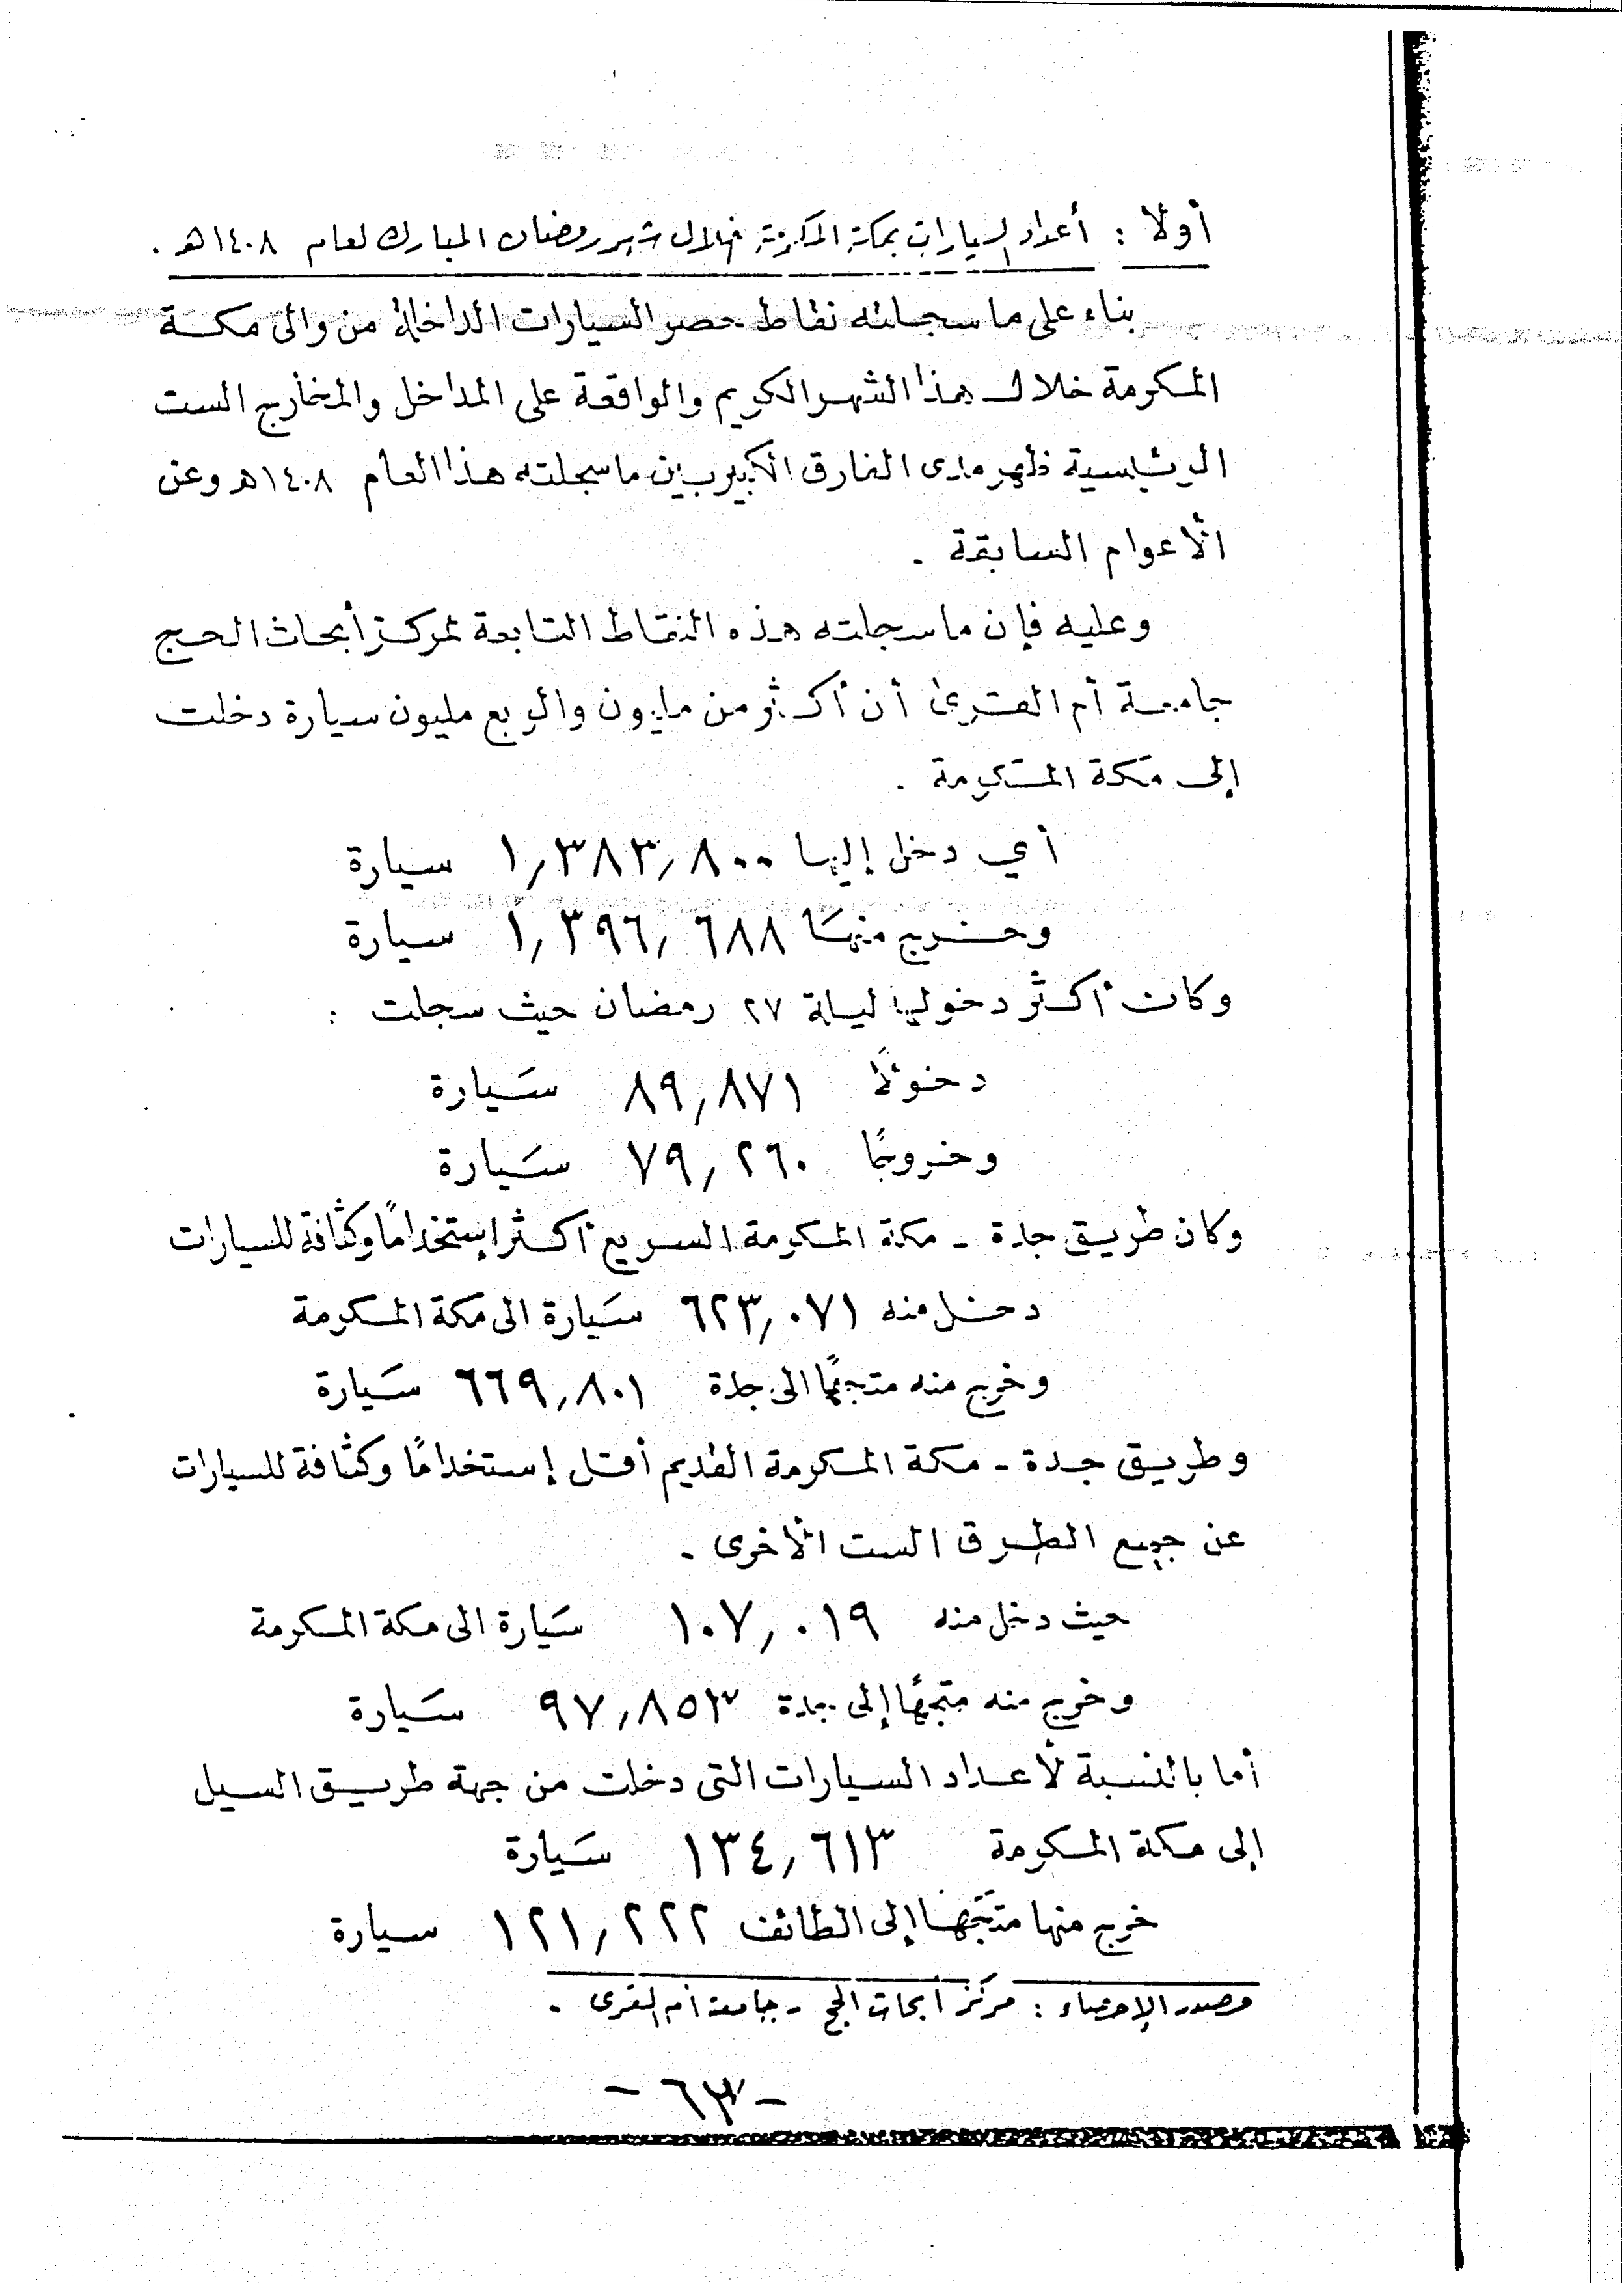 أولا : أعداد السيارات بمكة المكرمة خلال شهر رمضان المبارك لعام ١٤٠٨هـ .
بناء على ما سجلته نقاط حصر السيارات الداخلة من والى مكة
المكرمة خلال هذا الشهر الكريم والواقعة على المداخل والمخارج الست
الرئيسية ظهر مدى الفارق الكبير بين ما سجلته هذا العام ١٤٠٨هـ وعن
الأعوام السابقة .
وعليه فإن ما سجلته هذه النقاط التابعة لمركز أبحاث الحج
جامعة أم القرى أن أكثر من مليون والربع مليون سيارة دخلت
إلى مكة المكرمة .
أي دخل إليها ١,٣٨٣,٨٠٠ سيارة
وخرج منها ١,٣٩٦,٦٨٨ سيارة
وكان أكثر دخولها ليلة ٢٧ رمضان حيث سجلت :
دخولاً ٨٩,٨٧١ سَيارة
وخروجًا ٧٩,٢٦٠ سَيارة
وكان طريق جدة - مكة المكرمة السريع أكثر إستخدامًا وكثافة للسيارات
دخل منه ٦٢٣,٠٧١ سَيارة الى مكة المكرمة
وخرج منه متجهًا الى جدة ٦٦٩,٨٠١ سَيارة
وطريق جدة - مكة المكرمة القديم أقل إستخدامًا وكثافة للسيارات
عن جميع الطرق الست الأخرى .
حيث دخل منه ١٠٧,٠١٩ سَيارة الى مكة المكرمة
وخرج منه متجهًا إلى جدة ٩٧,٨٥٣ سَيارة
أما بالنسبة لأعداد السيارات التى دخلت من جهة طريق السيل
إلى مكة المكرمة ١٣٤,٦١٣ سَيارة
خرج منها متجهًا إلى الطائف ١٢١,٢٢٢ سيارة
مصدر الإحصاء : مركز أبحاث الحج - جامعة أم القرى .
- ٦٣ -